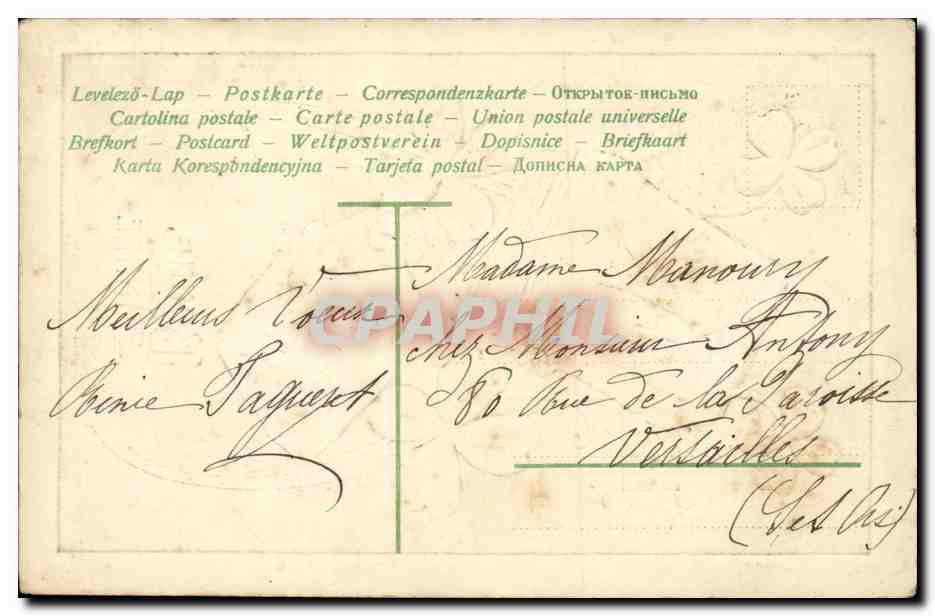 Levelező-Lap – Postkarte – Correspondenzkarte – Открыток-письмо
Cartolina postale – Carte postale – Union postale universelle
Brefkort – Postcard – Weltpostverein – Dopisnice – Briefkaart
Karta Korespondencyjna – Tarjeta postal – Дописна карта
Meilleurs Voeux
Paquert
Madame Manoury
chez Monsieur Antony
80 Rue de la Paroisse
Versailles
(S et Oise)
CPAPHIL